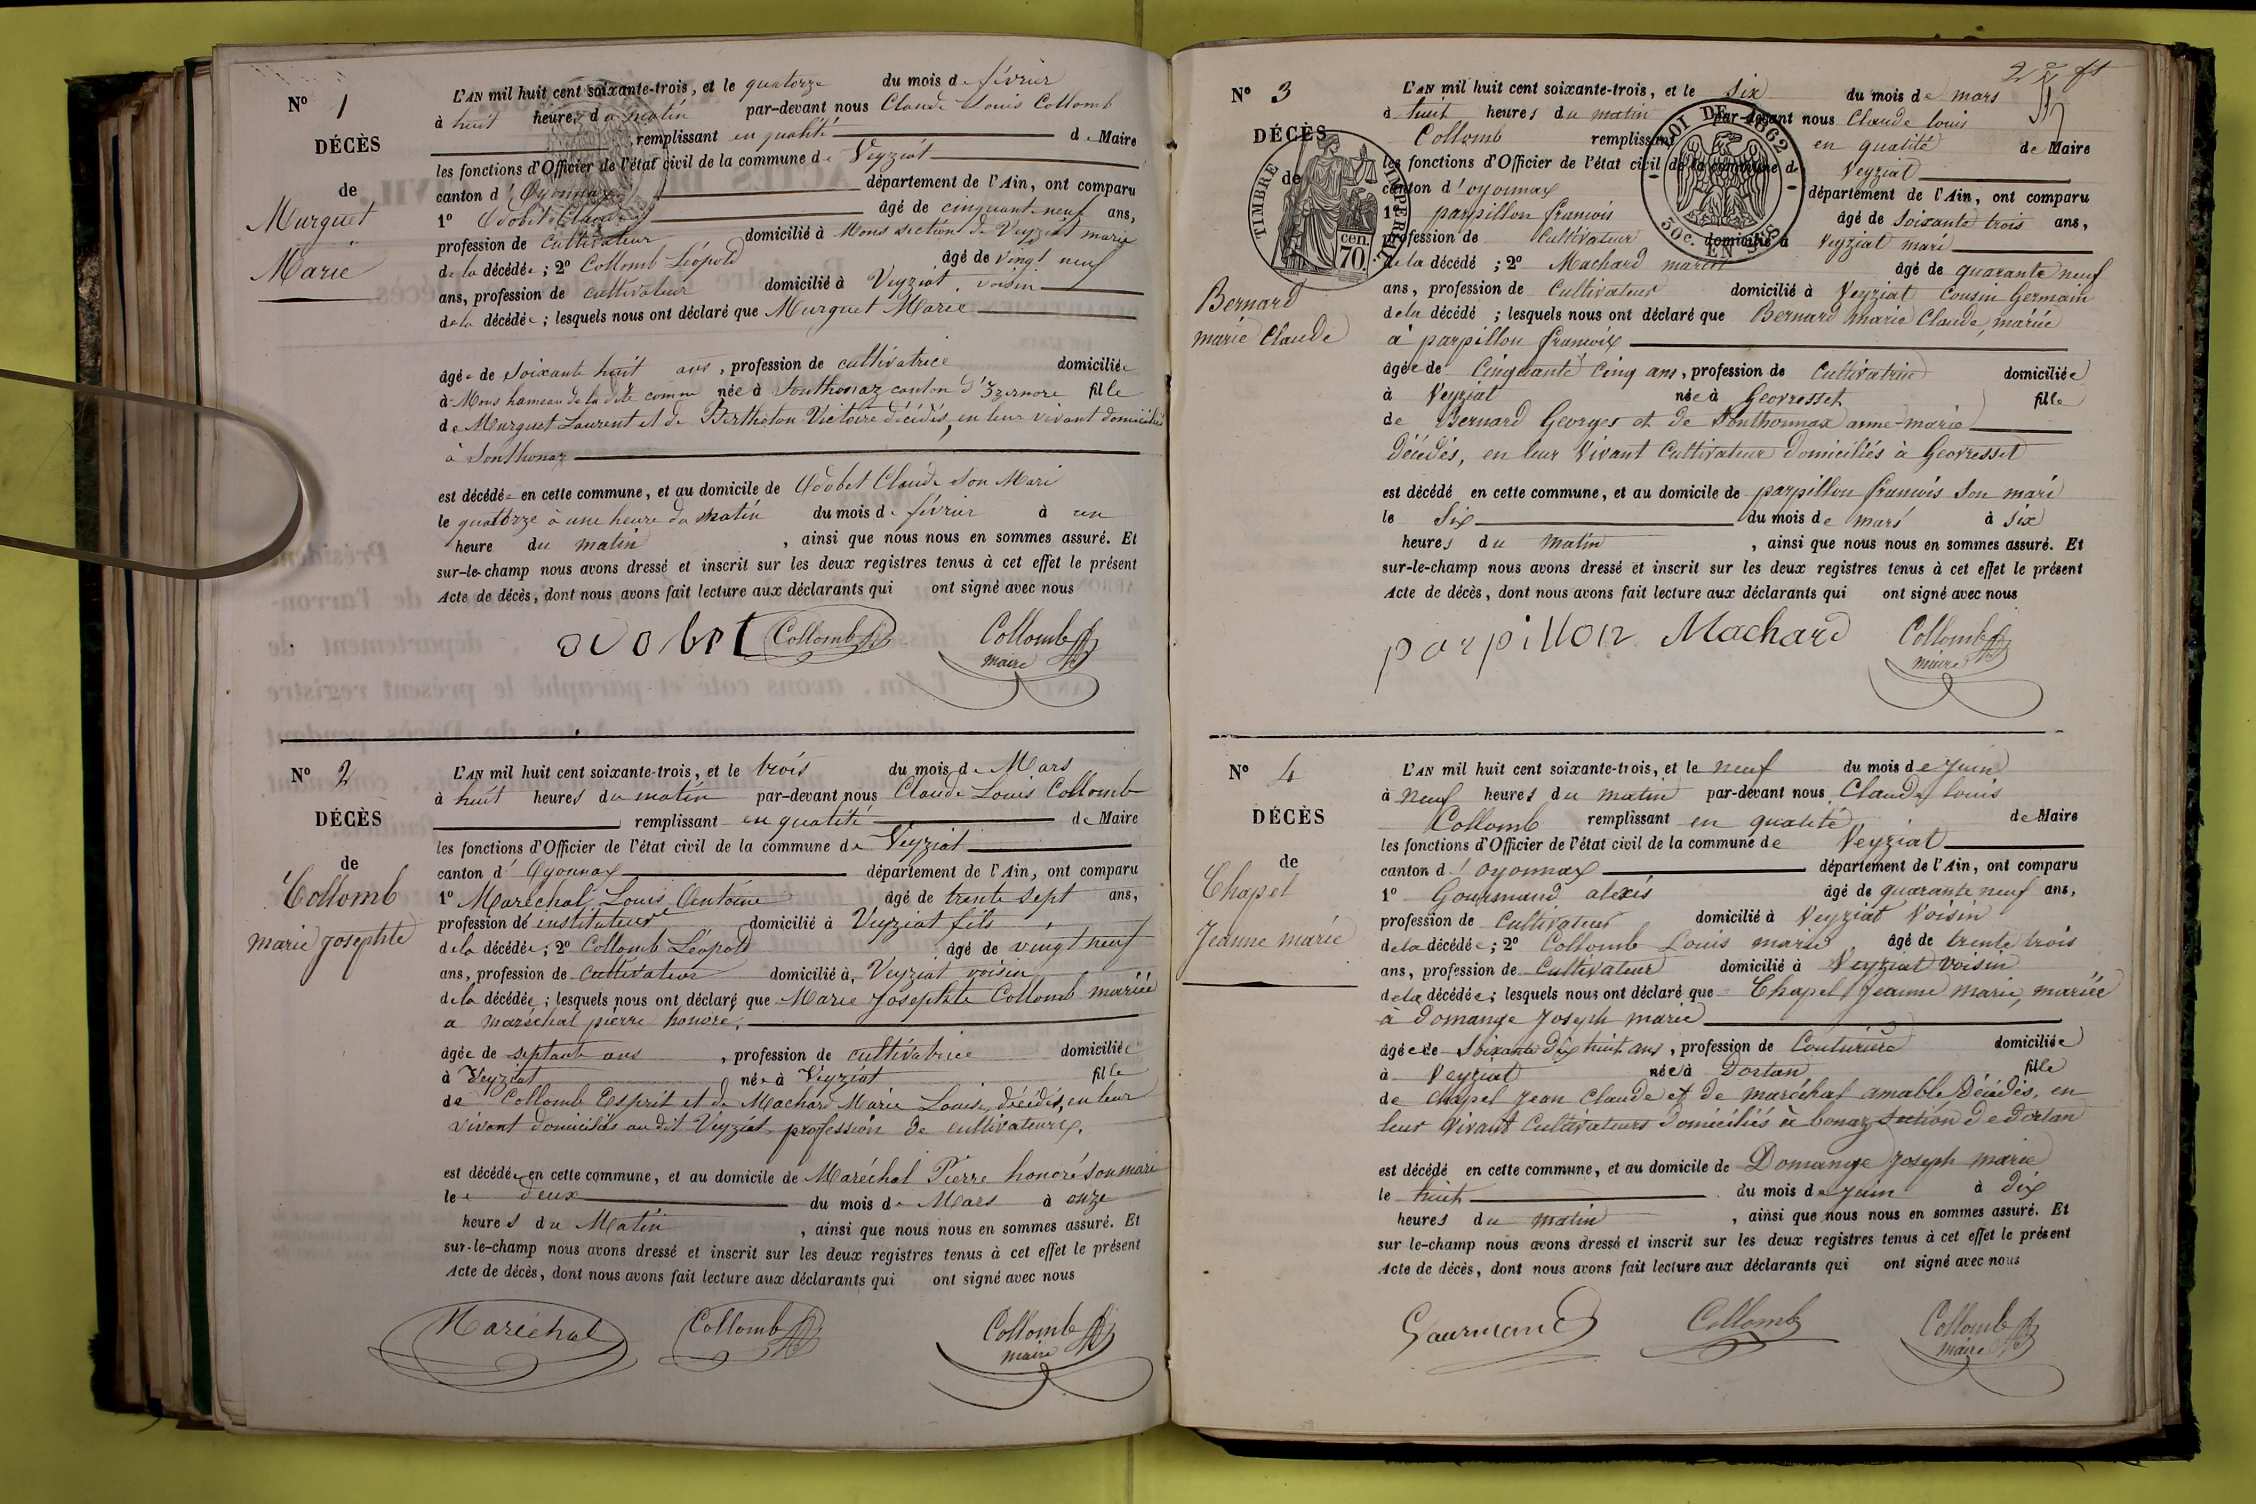 N° 1
DÉCÈS
de
Murguet
Marie
L'AN mil huit cent soixante-trois, et le quatorze du mois de février
à huit heures du matin par-devant nous Claude Louis Collomb
remplissant en qualité de Maire
les fonctions d'Officier de l'état civil de la commune de Veyziat
canton d'Oyonnax département de l'Ain, ont comparu
1° Odobet Claude âgé de cinquante neuf ans,
profession de cultivateur domicilié à Mons section de Veyziat marie
de la décédée ; 2° Collomb Léopold âgé de vingt neuf
ans, profession de cultivateur domicilié à Veyziat, voisin
de la décédée ; lesquels nous ont déclaré que Murguet Marie
âgée de soixante huit ans, profession de cultivatrice domiciliée
à Mons hameau de la dite comme née à Sonthonaz canton d'Izernore fille
de Murguet Laurent et de Bertheton Victoire décédés, en leur vivant domiciliés
à Sonthonaz
est décédée en cette commune, et au domicile de Odobet Claude son Mari
le quatorze à une heure du matin du mois de février à un
heure du matin, ainsi que nous nous en sommes assuré. Et
sur-le-champ nous avons dressé et inscrit sur les deux registres tenus à cet effet le présent
Acte de décès, dont nous avons fait lecture aux déclarants qui ont signé avec nous
odobet Collomb Collomb
maire
N° 2
DÉCÈS
de
Collomb
marie josephte
L'AN mil huit cent soixante-trois, et le trois du mois de Mars
à huit heures du matin par-devant nous Claude Louis Collomb
remplissant en qualité de Maire
les fonctions d'Officier de l'état civil de la commune de Veyziat
canton d'Oyonnax département de l'Ain, ont comparu
1° Maréchal Louis Antoine âgé de trente sept ans,
profession de instituteur domicilié à Veyziat fils
de la décédée ; 2° Collomb Léopold âgé de vingt neuf
ans, profession de cultivateur domicilié à, Veyziat voisin
de la décédée ; lesquels nous ont déclaré que Marie Josephte Collomb mariée
a maréchal pierre honoré,
âgée de septante ans, profession de cultivatrice domiciliée
à Veyziat née à Veyziat fille
de Collomb Esprit et de Machard Marie Louise, décédés, en leur
vivant domiciliés au dit Veyziat profession de cultivateurs.
est décédée en cette commune, et au domicile de Maréchal Pierre honoré son mari
le deux du mois de Mars à onze
heures du Matin, ainsi que nous nous en sommes assuré. Et
sur-le-champ nous avons dressé et inscrit sur les deux registres tenus à cet effet le présent
Acte de décès, dont nous avons fait lecture aux déclarants qui ont signé avec nous
Maréchal Collomb Collomb
maire
N° 3
DÉCÈS
de
TIMBRE IMPERIAL
70 cen.
LOI DE 1862
30c. EN SUS
Bernard
marie Claude
L'AN mil huit cent soixante-trois, et le six du mois de mars
à huit heures du matin par-devant nous Claude louis
Collomb remplissant en qualité de Maire
les fonctions d'Officier de l'état civil de la commune de Veyziat
canton d'oyonnax département de l'Ain, ont comparu
1° parpillon francois âgé de soixante trois ans,
profession de Cultivateur domicilié à Veyziat mari
de la décédé ; 2° Machard marin âgé de quarante neuf
ans, profession de Cultivateur domicilié à Veyziat Cousin Germain
de la décédé ; lesquels nous ont déclaré que Bernard marie Claude, mariée
à parpillon francois
âgée de Cinquante Cinq ans, profession de Cultivatrice domiciliée
à Veyziat née à Geovresset fille
de Bernard Georges et de Sonthonnax anne-marie
décédés, en leur Vivant Cultivateur domiciliés à Geovresset
est décédé en cette commune, et au domicile de parpillon francois son mari
le Six du mois de mars à six
heures du matin, ainsi que nous nous en sommes assuré. Et
sur-le-champ nous avons dressé et inscrit sur les deux registres tenus à cet effet le présent
Acte de décès, dont nous avons fait lecture aux déclarants qui ont signé avec nous
parpillon Machard Collomb
maire
N° 4
DÉCÈS
de
Chapel
Jeanne marie
L'AN mil huit cent soixante-trois, et le neuf du mois de juin
à neuf heures du matin par-devant nous Claude louis
Collomb remplissant en qualité de Maire
les fonctions d'Officier de l'état civil de la commune de Veyziat
canton d'oyonnax département de l'Ain, ont comparu
1° Gourmand alexis âgé de quarante neuf ans,
profession de Cultivateur domicilié à Veyziat Voisin
de la décédée ; 2° Collomb Louis marie âgé de trente trois
ans, profession de Cultivateur domicilié à Veyziat voisin
de la décédée ; lesquels nous ont déclaré que Chapel Jeanne marie, mariée
à Domange Joseph marie
âgée de Soixante dix huit ans, profession de Couturière domiciliée
à Veyziat née à Dortan fille
de chapel Jean Claude et de maréchal amable Décédés, en
leur vivant Cultivateurs domiciliés à bonaz Section de Dortan
est décédé en cette commune, et au domicile de Domange Joseph marie
le huit du mois de juin à dix
heures du matin, ainsi que nous nous en sommes assuré. Et
sur le-champ nous avons dressé et inscrit sur les deux registres tenus à cet effet le présent
Acte de décès, dont nous avons fait lecture aux déclarants qui ont signé avec nous
Gourmand Collomb Collomb
maire